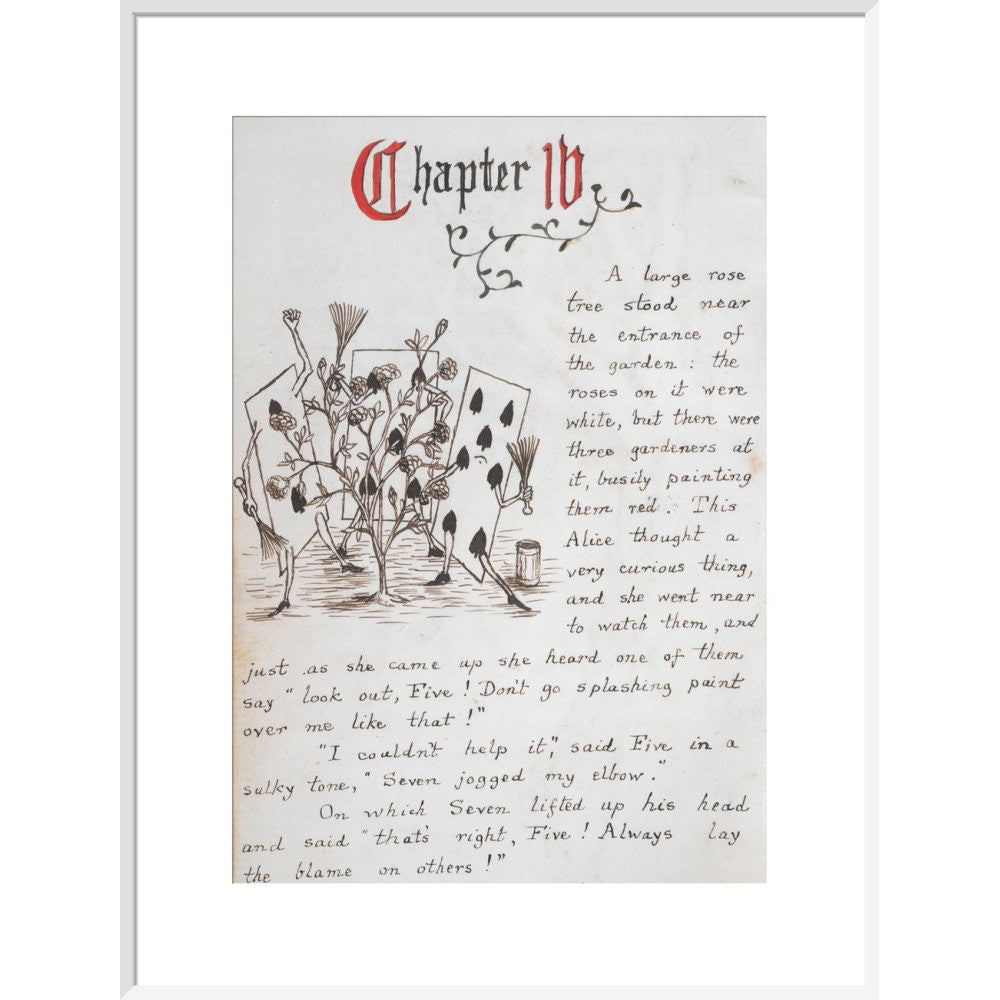 Chapter IV
A large rose
tree stood near
the entrance of
the garden : the
roses on it were
white, but there were
three gardeners at
it, busily painting
them red. This
Alice thought a
very curious thing,
and she went near
to watch them, and
just as she came up she heard one of them
say "look out, Five! Don't go splashing paint
over me like that!"
"I couldn't help it," said Five in a
sulky tone, "Seven jogged my elbow."
On which Seven lifted up his head
and said "that's right, Five! Always lay
the blame on others!"